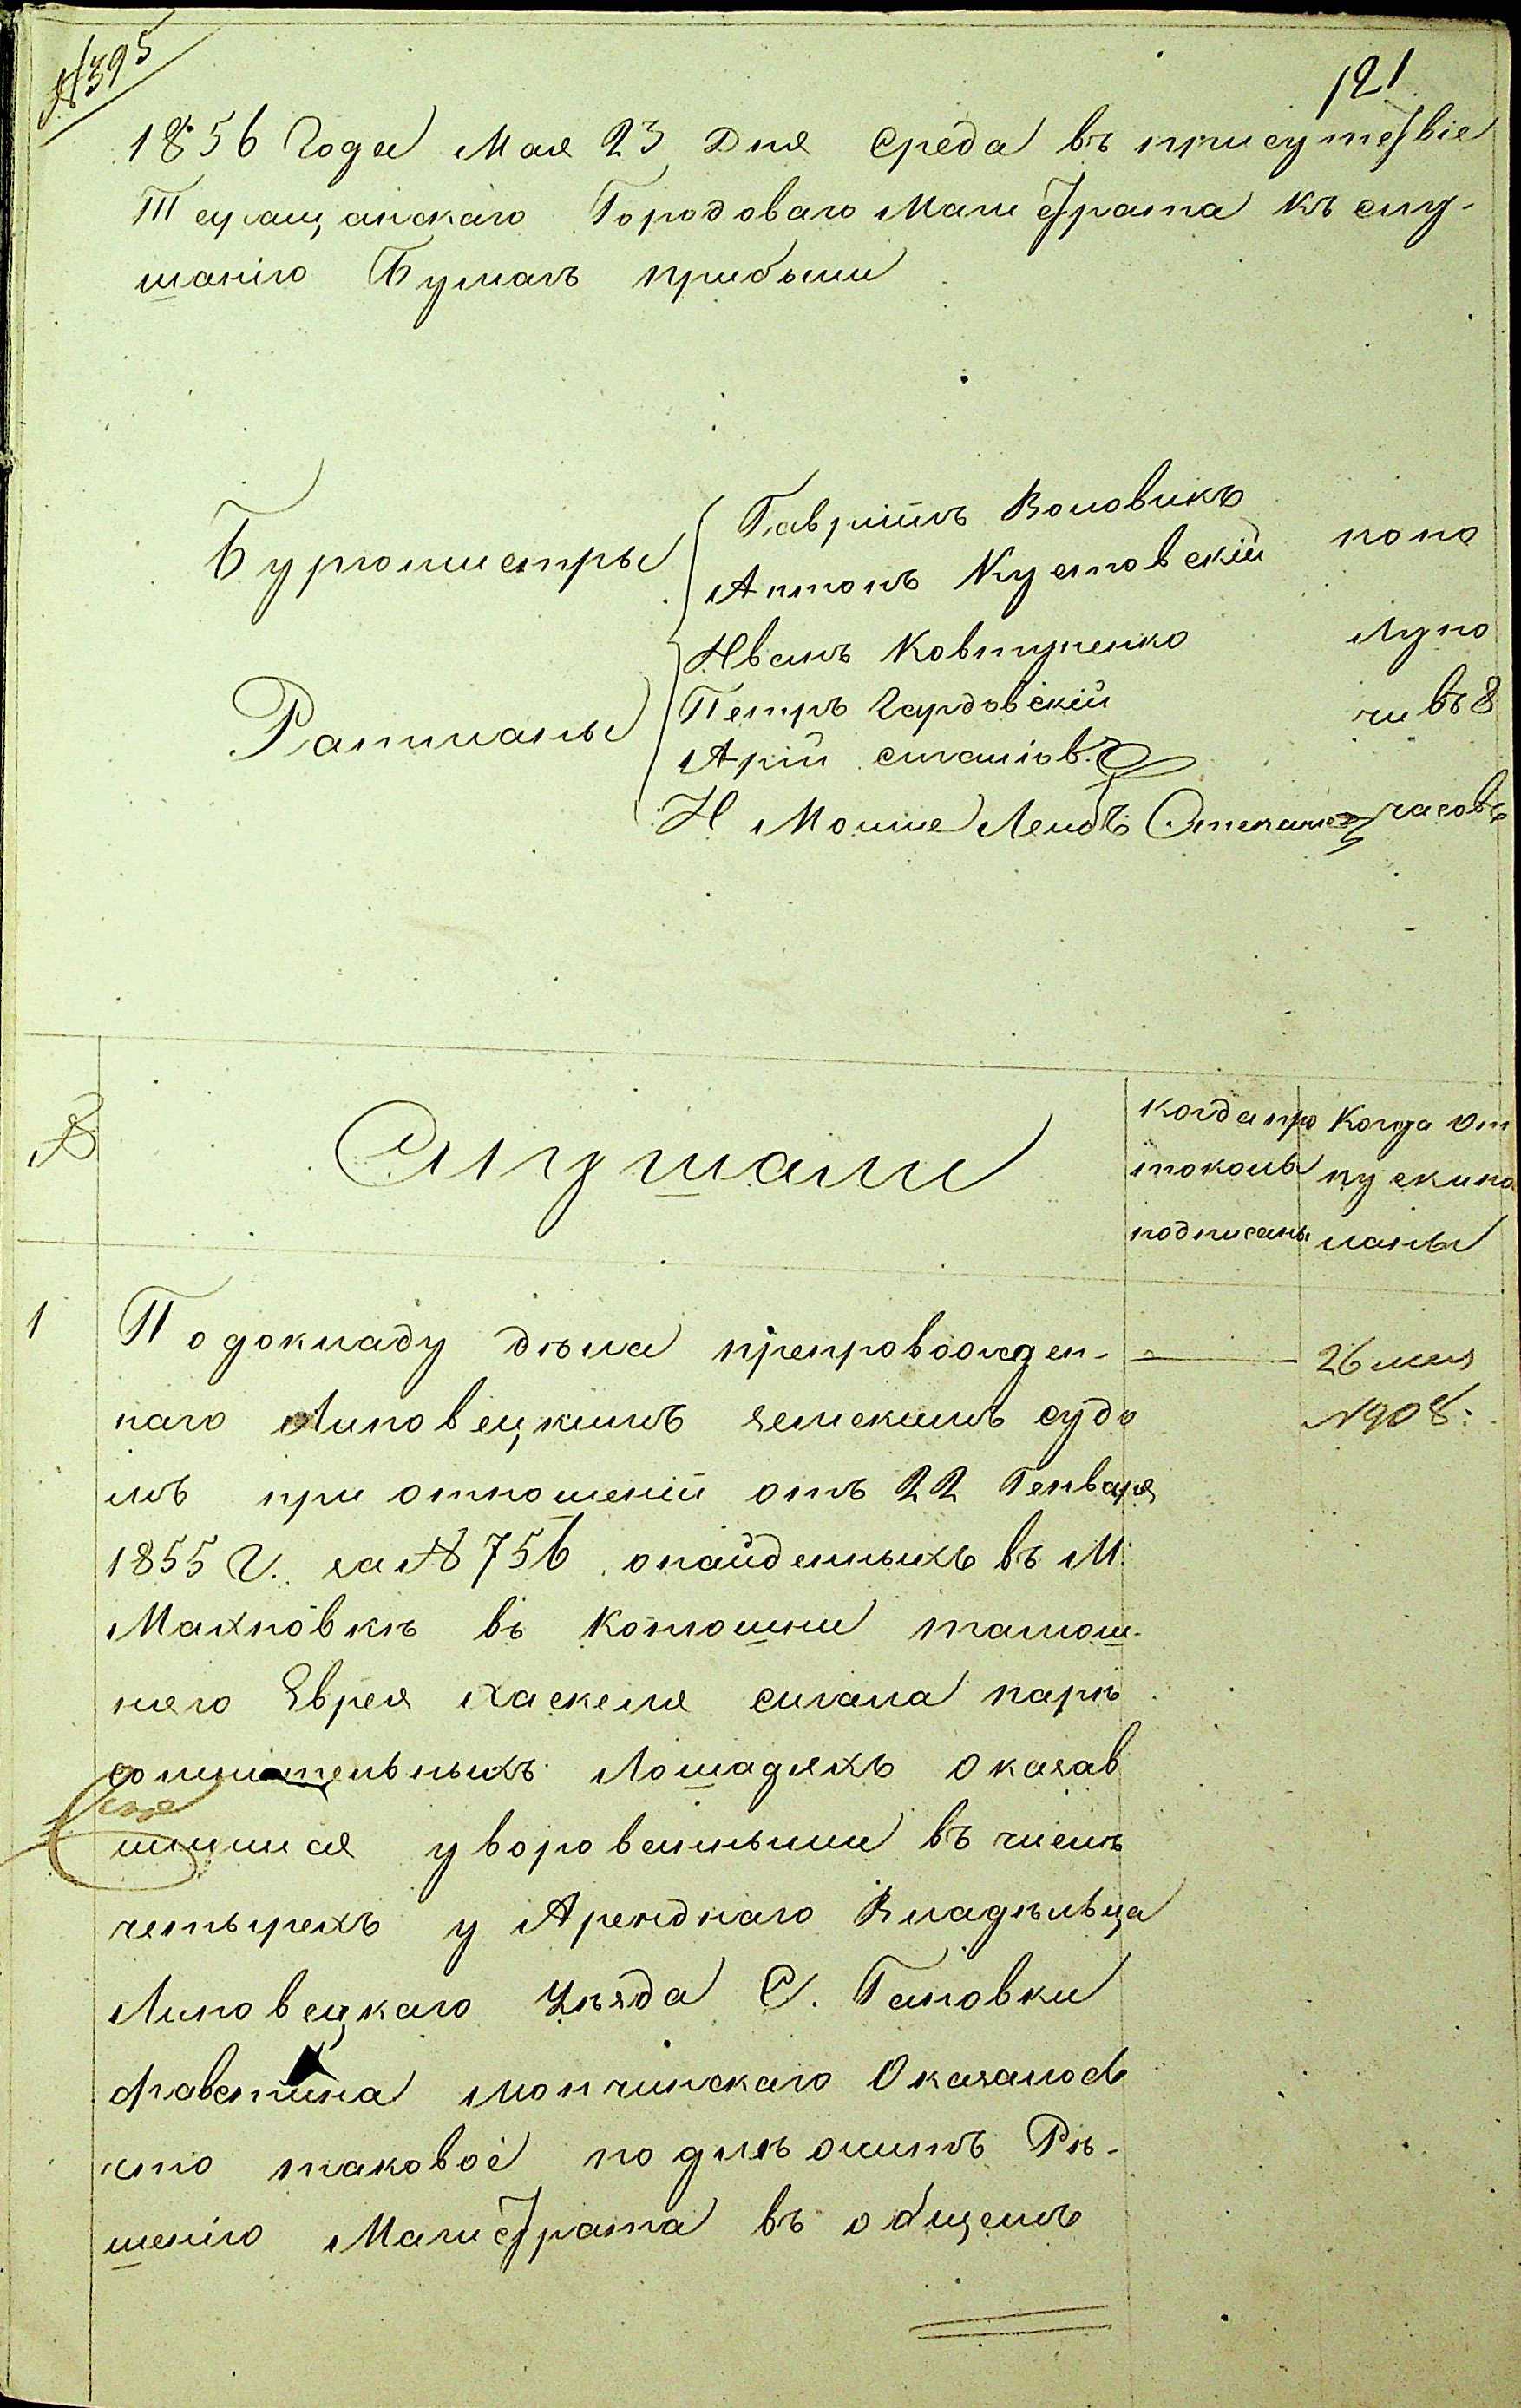 №395
121
1856 Года Мая 23 Дня Среда въ присутствіе
Таращанскаго Городоваго Магистрата къ слу-
шанію Бумагъ прибыли
Бургомистры
Гавріилъ Воловикъ
Антонъ Кулговскій
попо
Ратманы
Иванъ Ковтуненко
лупо
Петръ Гардовскій
чи въ 8
Арій
И Мошие Лейбъ
часовъ
№
Слушали
когда про
токолы
подписаны
Когда от
пускъ по
сланы
1
По докладу дѣла препровожден-
наго Липовецкимъ земскимъ судо
мъ при отношеніи отъ 22 Генваря
1855 г. за №756 онайденныхъ въ М:
Махновкѣ въ Конюшни тамош-
няго Еврея Хаскеля сигала паръ
сомнительныхъ Лошадяхъ оказав
шимися уворованными въ числѣ
четырехъ у Аренднаго Владѣльца
Липовецкаго Уѣзда С. Гановки
Фавстина мончинскаго Оказалось
что таковое подлѣжитъ Рѣ-
шенію Магистрата въ общемъ
26 мая
№908: